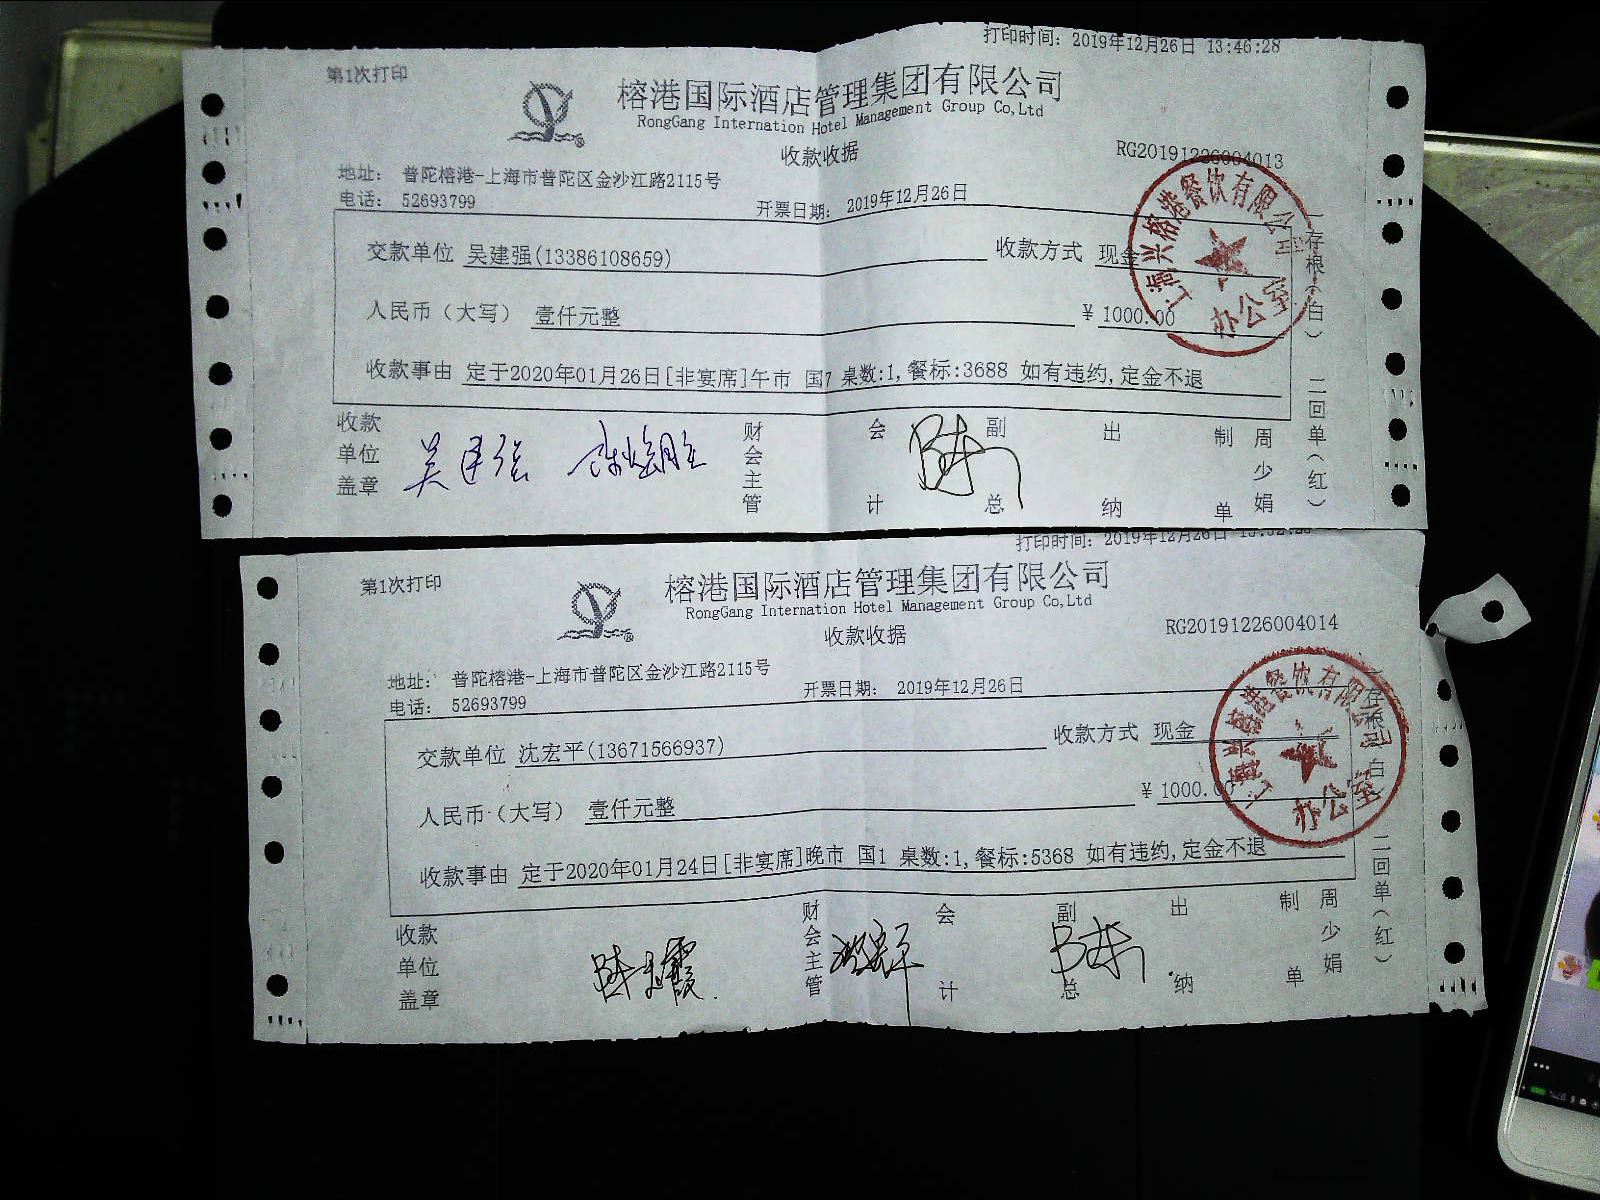 打印时间: 2019年12月26日 13:46:28
第1次打印
榕港国际酒店管理集团有限公司
RongGang Internation Hotel Management Group Co,Ltd
收款收据
RG20191226004013
地址: 普陀榕港-上海市普陀区金沙江路2115号
电话: 52693799
开票日期: 2019年12月26日
交款单位 吴建强(13386108659)
收款方式 现金
人民币(大写) 壹仟元整
¥ 1000.00
收款事由 定于2020年01月26日[非宴席]午市 国7 桌数:1,餐标:3688 如有违约,定金不退
收款单位盖章
吴建强
财会主管
会计
副总
出纳
制单
周少娟
一存根(白)
二回单(红)
上海兴榕港餐饮有限公司
办公室
打印时间: 2019年12月26日
第1次打印
榕港国际酒店管理集团有限公司
RongGang Internation Hotel Management Group Co,Ltd
收款收据
RG20191226004014
地址: 普陀榕港-上海市普陀区金沙江路2115号
电话: 52693799
开票日期: 2019年12月26日
交款单位 沈宏平(13671566937)
收款方式 现金
人民币(大写) 壹仟元整
¥ 1000.00
收款事由 定于2020年01月24日[非宴席]晚市 国1 桌数:1,餐标:5368 如有违约,定金不退
收款单位盖章
财会主管
会计
副总
出纳
制单
周少娟
一存根(白)
二回单(红)
上海兴榕港餐饮有限公司
办公室